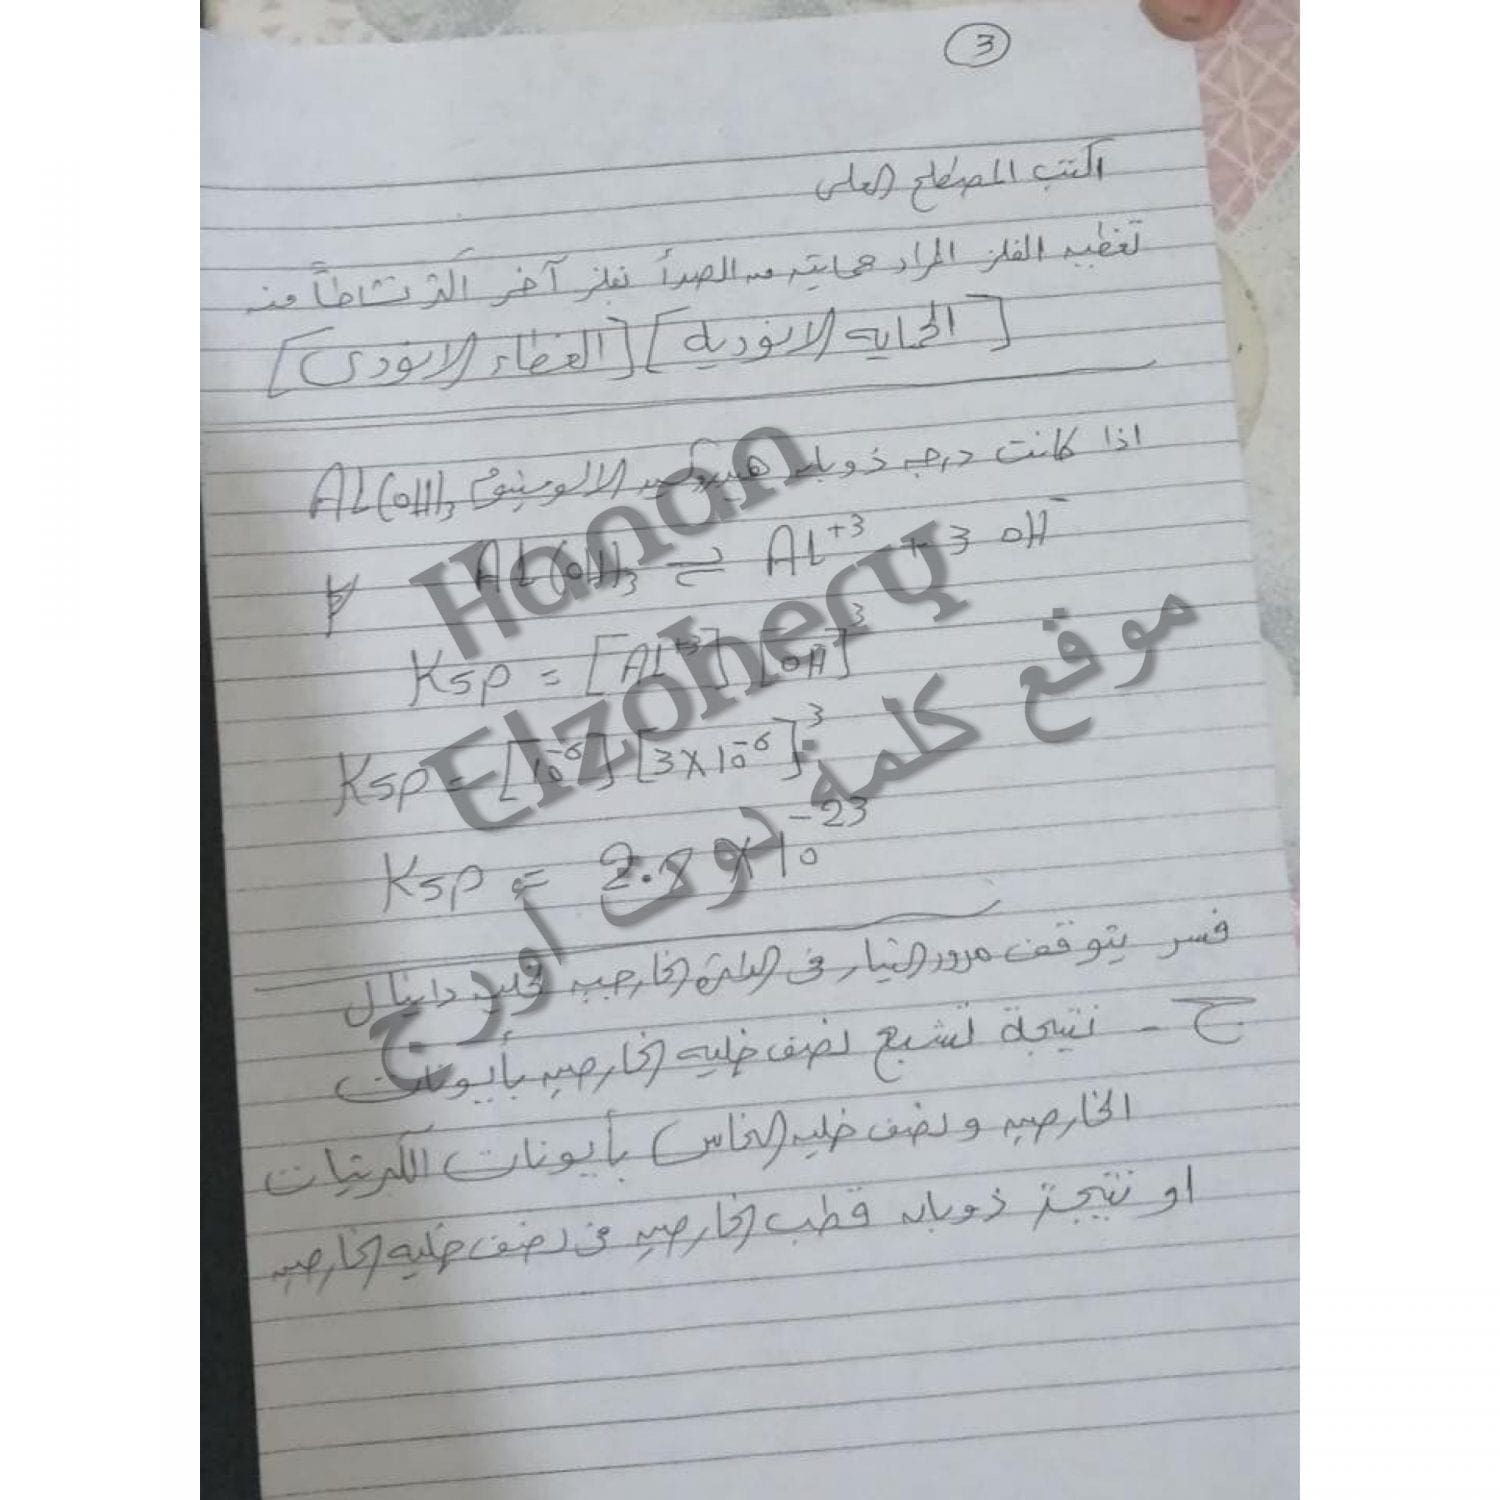 3
اكتب المصطلح العلمى
تغطيه الفلز المراد حمايته من الصدأ بفلز آخر أكثر نشاطاً منه
[الحمايه الانوديه] [الغطاء الانودى]
اذا كانت درجه ذوبانه هيدروكسيد الالومنيوم Al(OH)3
Al(OH)3 ⇌ Al+3 + 3 OH-
Ksp = [Al+3] [OH-]3
Ksp = [10-6] [3X10-6]3
Ksp = 2.7 X 10-23
فسر يتوقف مرور التيار فى الدائرة الخارجيه لخليه دانيال
ج - نتيجة تشبع نصف خليه الخارصين بأيونات
الخارصين ونصف خليه (النحاس) بأيونات الكبريتات
او نتيجة ذوبان قطب الخارصين فى نصف خليه الخارصين
Hanan
Elzohery
موقع كلمة دوت أورج